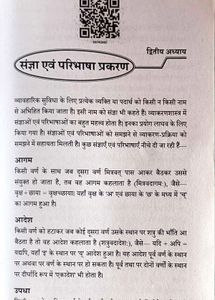 द्वितीय अध्याय
संज्ञा एवं परिभाषा प्रकरण
व्यावहारिक सुविधा के लिए प्रत्येक व्यक्ति या पदार्थ को किसी न किसी नाम
से अभिहित किया जाता है। इसी नाम को संज्ञा भी कहते हैं। व्याकरणशास्त्र में
संज्ञाओं एवं परिभाषाओं का बहुत महत्व होता है। इनका प्रयोग लाघव के लिए
किया गया है। संज्ञाओं एवं परिभाषाओं को समझने से व्याकरण-प्रक्रिया को
समझने में सहायता मिलती है। कुछ संज्ञाएँ एवं परिभाषाएँ नीचे दी जा रही हैं—
आगम
किसी वर्ण के साथ जब दूसरा वर्ण मित्रवत् पास आकर बैठकर उससे
संयुक्त हो जाता है, तब वह आगम कहलाता है (मित्रवदागमः), जैसे—
वृक्ष + छाया = वृक्षच्छाया। यहाँ वृक्ष के 'अ' एवं छाया के 'छ' के मध्य में 'च्'
का आगम हुआ है।
आदेश
किसी वर्ण को हटाकर जब कोई दूसरा वर्ण उसके स्थान पर शत्रु की भाँति आ
बैठता है तो वह आदेश कहलाता है (शत्रुवदादेशः), जैसे— यदि + अपि –
यद्यपि, यहाँ 'इ' के स्थान पर 'य्' आदेश हुआ है। यह आदेश पूर्व वर्ण के स्थान
पर अथवा पर वर्ण के स्थान पर हो सकता है। पूर्व तथा पर दोनों वर्णों के स्थान
पर दीर्घादि रूप में 'एकादेश' भी होता है।
उपधा